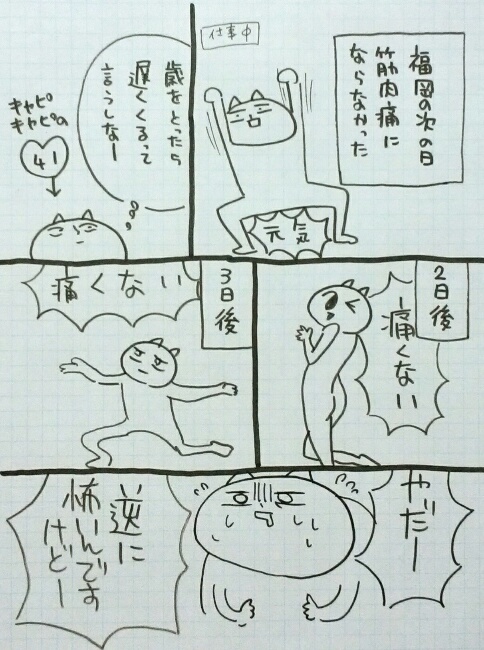 福岡の次の日
筋肉痛に
ならなかった
仕事中
元気
歳をとったら
遅くくるって
言うしなー
キャピ
キャピの
41
2日後
痛くない
3日後
痛くない
やだー
逆に
怖いんです
けどー